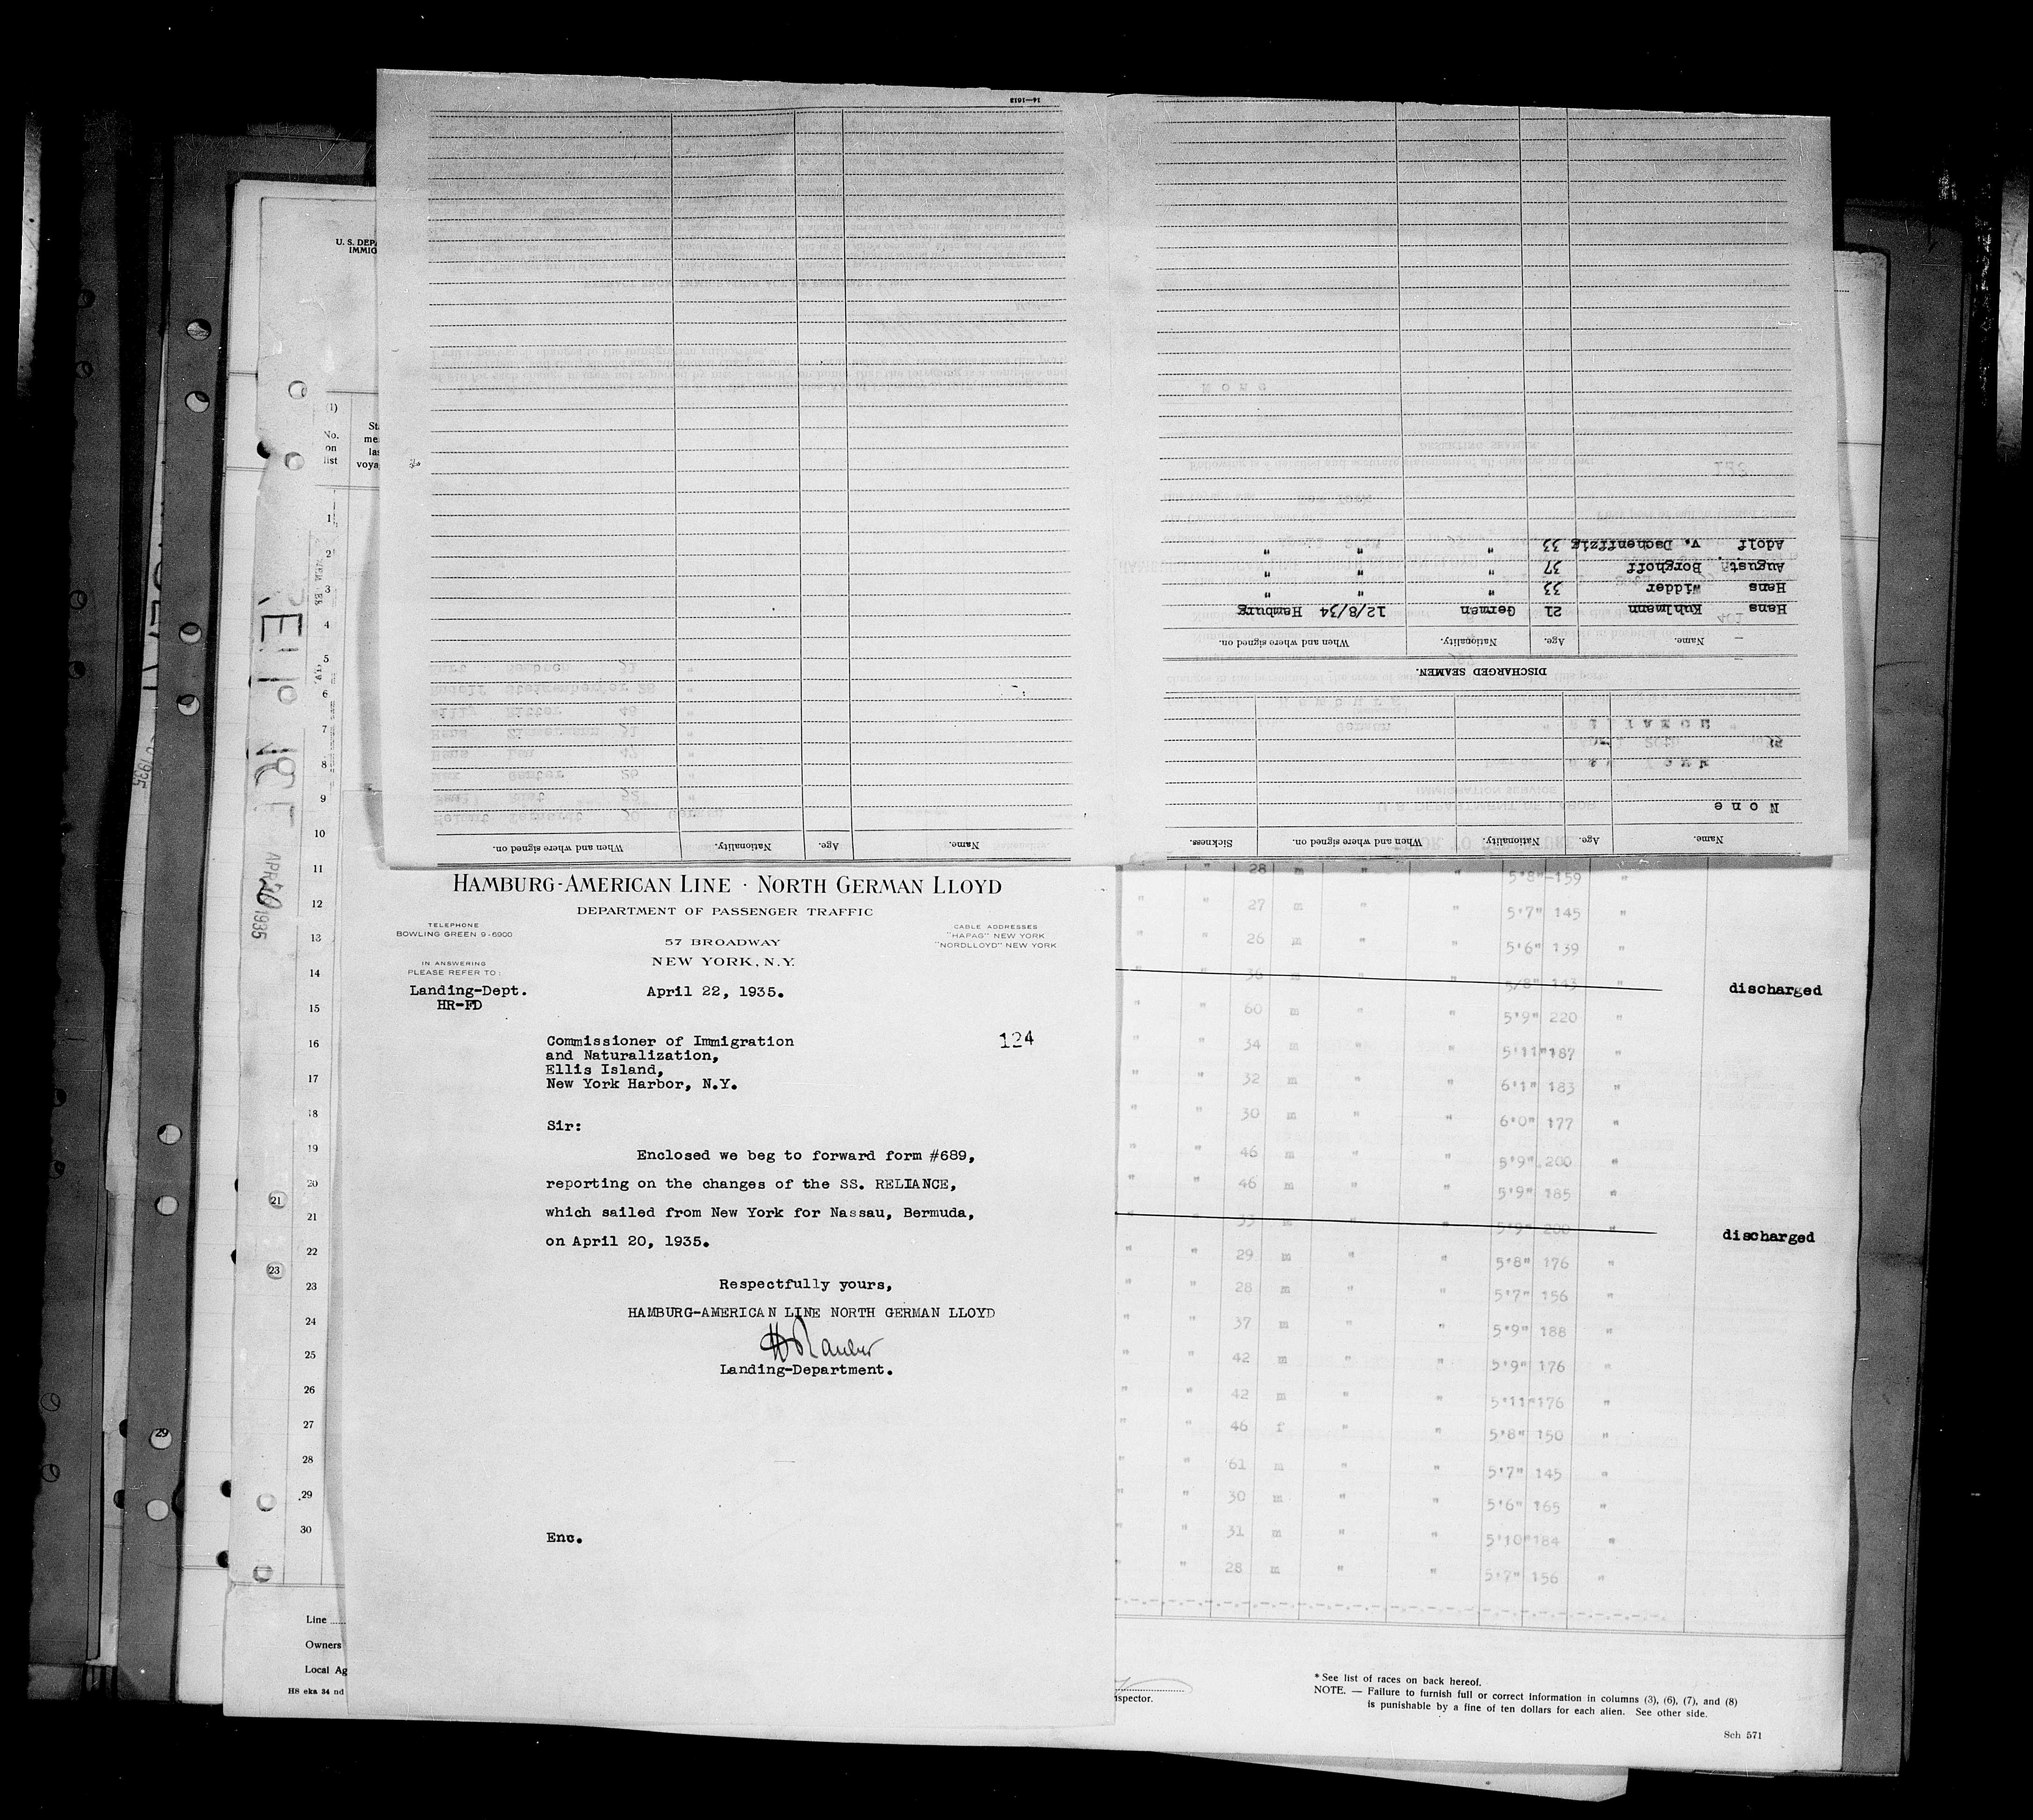 14—1613
Name. Age. Nationality. When and where signed on. Sickness.
None
DISCHARGED SEAMEN.
Name. Age. Nationality. When and where signed on.
Hans Kuhlmann 21 German 12/8/34 Hamburg
Hans Widder 33 " " "
August Borghoff 37 " " "
Adolf v. Dschenffzig 33 " " "
Name. Age. Nationality. When and where signed on.
U. S. DEPA
IMMIG
(1)
No.
on
list
1
2
3
4
5
6
7
8
9
10
11
12
13
14
15
16
17
18
19
20
21
22
23
24
25
26
27
28
29
30
APR 20 1935
21
23
29
HAMBURG-AMERICAN LINE · NORTH GERMAN LLOYD
DEPARTMENT OF PASSENGER TRAFFIC
TELEPHONE
BOWLING GREEN 9-6900
57 BROADWAY
NEW YORK, N.Y.
CABLE ADDRESSES
"HAPAG" NEW YORK
"NORDLLOYD" NEW YORK
IN ANSWERING
PLEASE REFER TO:
Landing-Dept.
HR-FD
April 22, 1935.
124
Commissioner of Immigration
and Naturalization,
Ellis Island,
New York Harbor, N.Y.
Sir:
Enclosed we beg to forward form #689,
reporting on the changes of the SS. RELIANCE,
which sailed from New York for Nassau, Bermuda,
on April 20, 1935.
Respectfully yours,
HAMBURG-AMERICAN LINE NORTH GERMAN LLOYD
Landing-Department.
Enc.
" 28 m " " 5'8" 159 "
" " 27 m " " 5'7" 145 "
" " 26 m " " 5'6" 139 "
" " 36 m " " 5'8" 143 " discharged
" " 60 m " " 5'9" 220 "
" " 34 m " " 5'11" 187 "
" " 32 m " " 6'1" 183 "
" " 30 m " " 6'0" 177 "
" " 46 m " " 5'9" 200 "
" " 46 m " " 5'9" 185 "
" " 33 m " " 5'9" 200 " discharged
" " 29 m " " 5'8" 176 "
" " 28 m " " 5'7" 156 "
" " 37 m " " 5'9" 188 "
" " 42 m " " 5'9" 176 "
" " 42 m " " 5'11" 176 "
" " 46 f " " 5'8" 150 "
" " 61 m " " 5'7" 145 "
" " 30 m " " 5'6" 165 "
" " 31 m " " 5'10" 184 "
" " 28 m " " 5'7" 156 "
Line
Owners
Local Ag
H8 eka 34 nd
spector.
* See list of races on back hereof.
NOTE. — Failure to furnish full or correct information in columns (3), (6), (7), and (8)
is punishable by a fine of ten dollars for each alien. See other side.
Sch 571